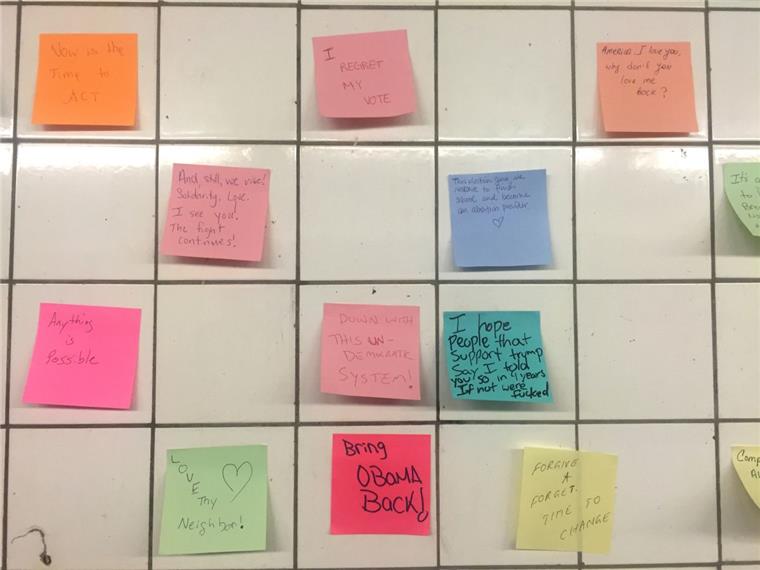 Now is the
Time to
ACT
I
REGRET
MY
VOTE
AMERICA I love you,
why don't you
love me
BACK?
And still, we rise!
Solidarity. Love.
I see you.
The fight
continues!
This election gave me
resolve to finish
school and become
an abortion provider
♡
It's
to
Anything
is
Possible
DOWN WITH
THIS UN-
DEMOCRATIC
SYSTEM!
I hope
People that
Support trump
Say I told
you so in 4 years
If not were
fucked
LOVE
Thy
Neighbor!
Bring
OBAMA
BACK!
FORGIVE
&
FORGET.
TIME TO
CHANGE